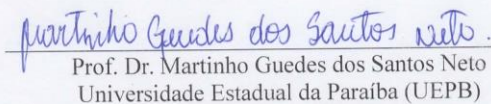 Martinho Guedes dos Santos Neto.
Prof. Dr. Martinho Guedes dos Santos Neto
Universidade Estadual da Paraíba (UEPB)